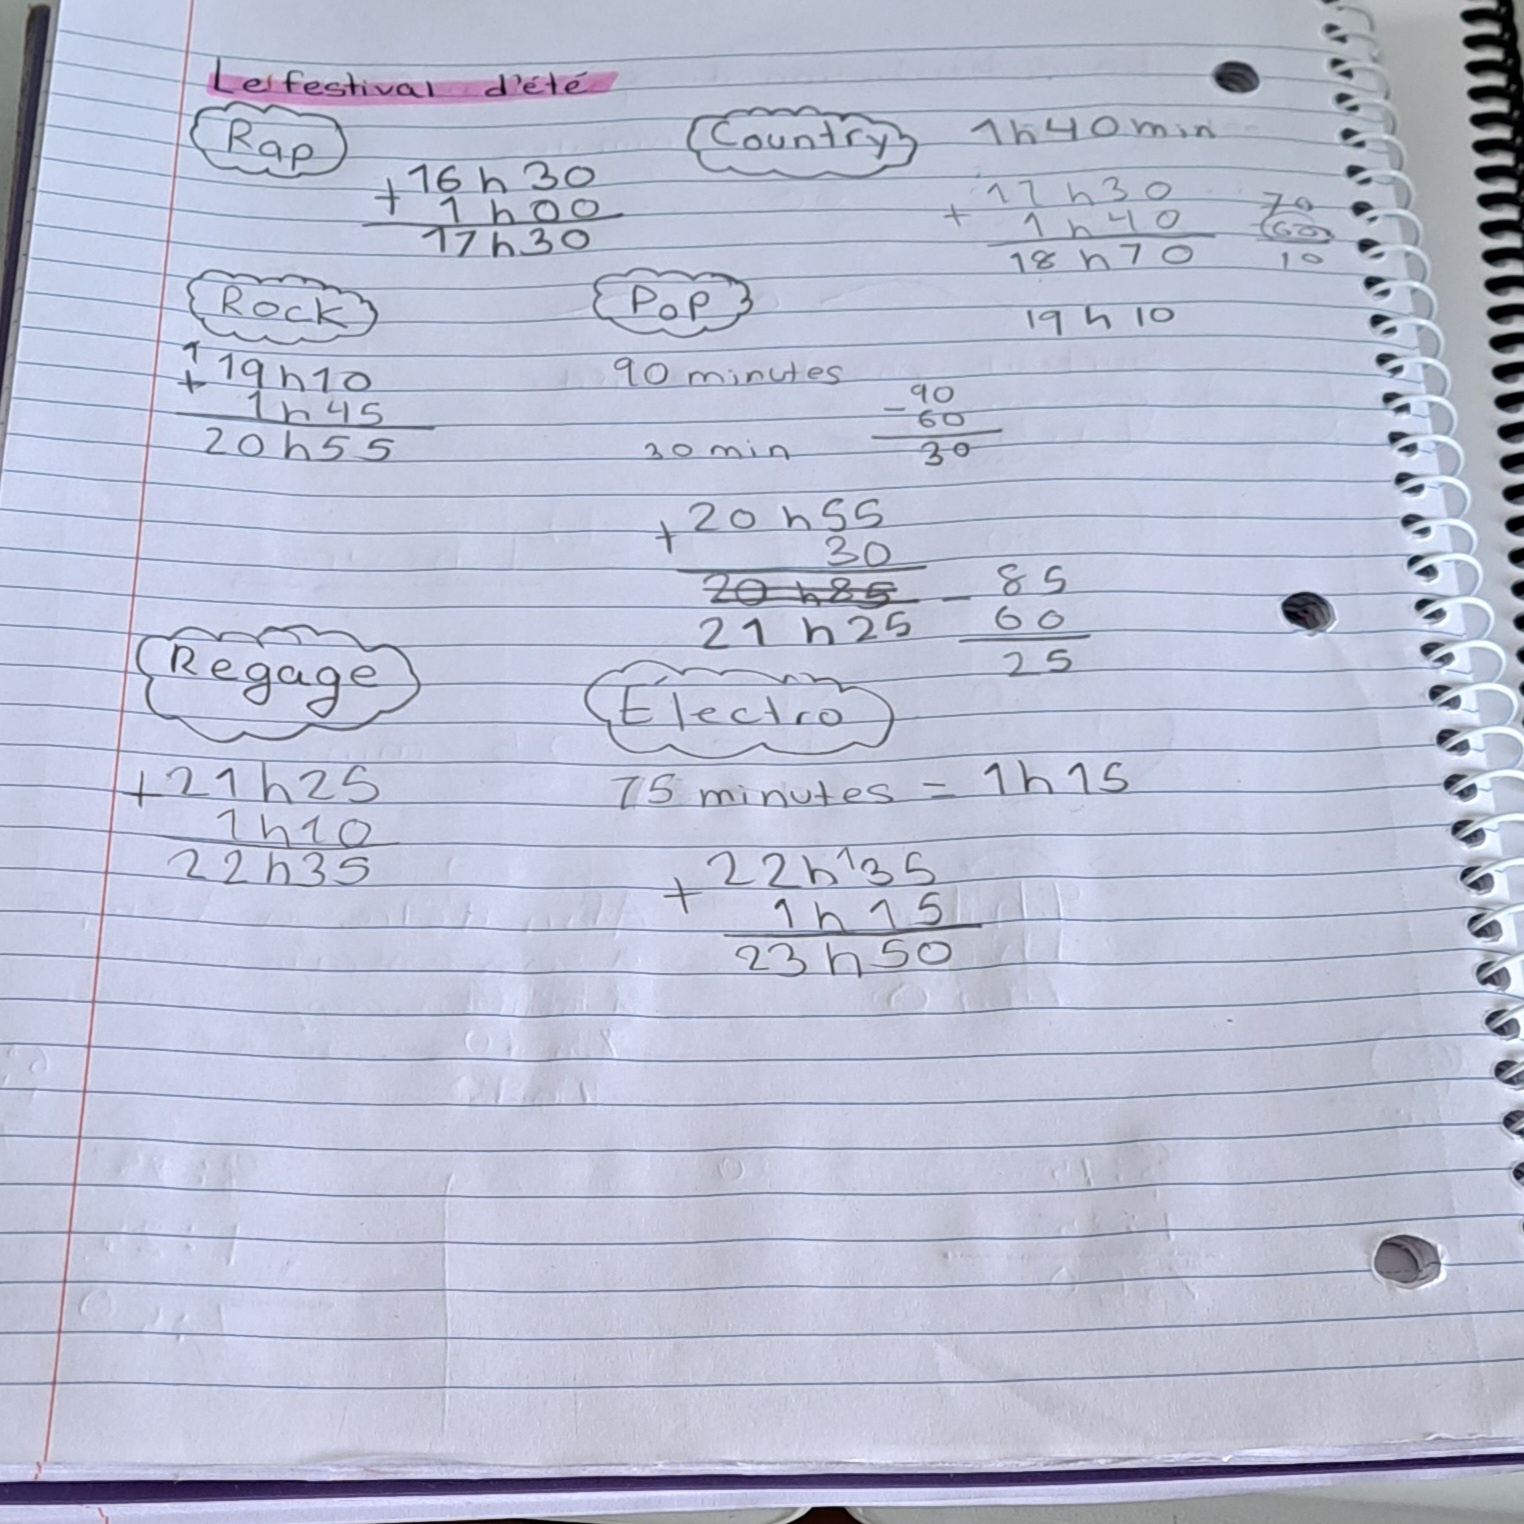 Le festival d'été
Rap
+16h30
1h00
17h30
Country 1h40min
17h30
+ 1h40
18h70
70
60
10
19h10
Rock
1
+19h10
1h45
20h55
Pop
90 minutes
-90
60
30
30 min
+20h55
30
20h85
21h25
-85
60
25
Regage
+21h25
1h10
22h35
Électro
75 minutes = 1h15
+22h135
1h15
23h50